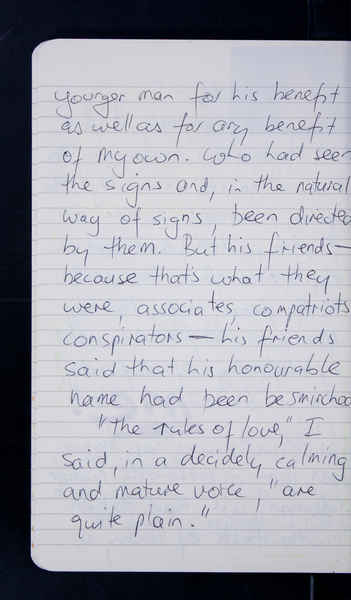 younger man for his benefit
as well as for any benefit
of my own. Who had seen
the signs and, in the natural
way of signs, been directed
by them. But his friends—
because that's what they
were, associates, compatriots
conspirators — his friends
said that his honourable
name had been besmirched
"The rules of love," I
said, in a decidely calming
and mature voice, "are
quite plain."